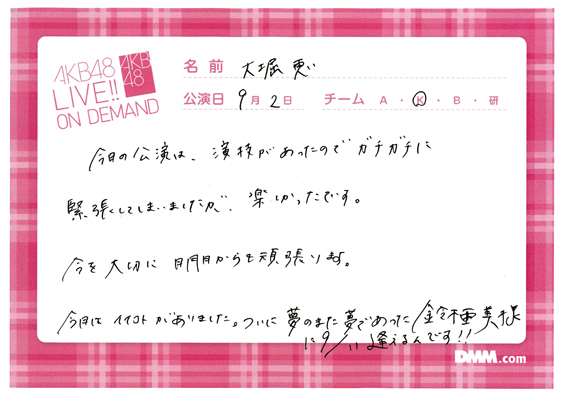 AKB48
LIVE!!
ON DEMAND
AKB
48
名前 大堀 恵
公演日 9月2日 チーム A・K・B・研
今日の公演は、演技があったのでガチガチに
緊張してしまいましたが、楽しかったです。
今を大切に 明日からも頑張ります。
今日は イイコトがありました。ついに 夢のまた夢であった 鈴木亜美様
に9/11 逢えるんです!!
DMM.com